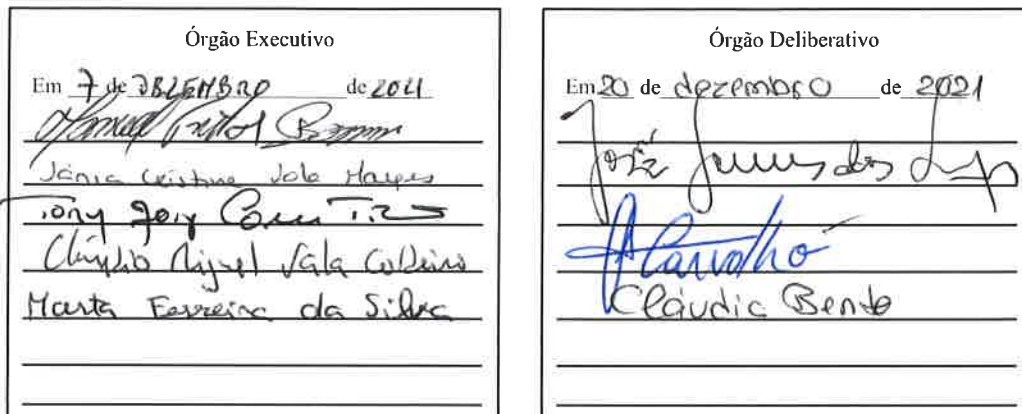 Órgão Executivo
Em 7 de DEZEMBRO de 2021
Tânia Cristina Vala Marques
Tony Jory
Cláudio Miguel Vala
Marta Ferreira da Silva
Órgão Deliberativo
Em 20 de dezembro de 2021
José dos
Carvalho
Cláudia Bento